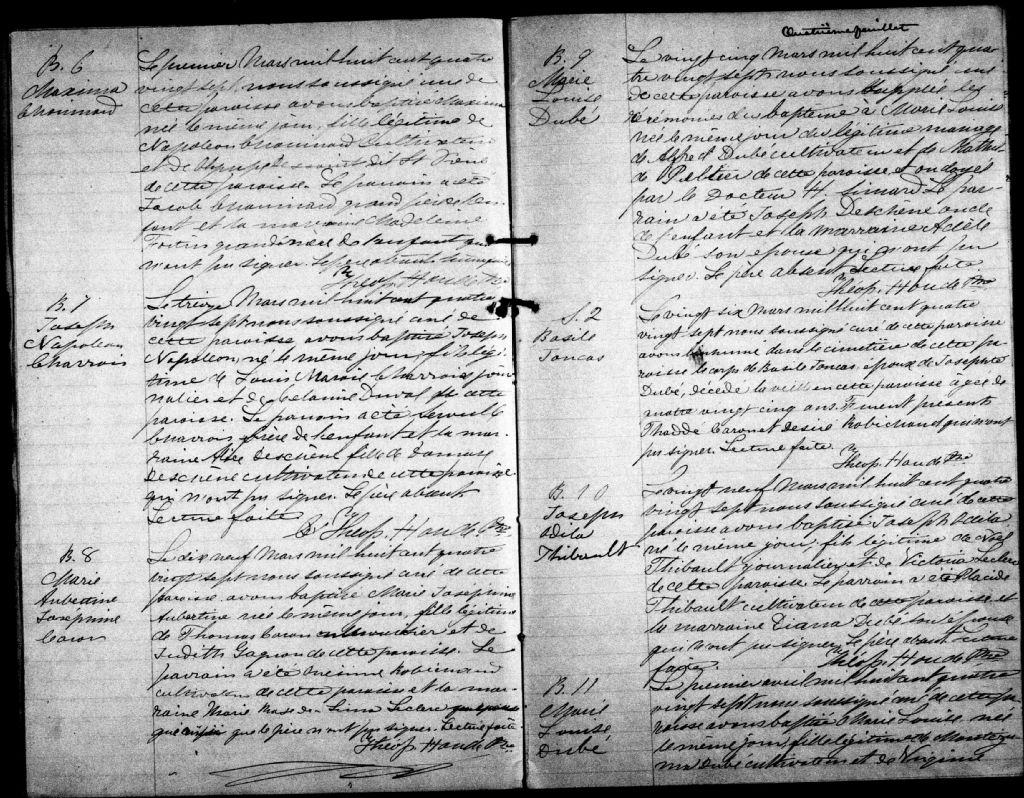 B. 6
Maxima
Chouinard
Le premier Mars mil huit cent quatre
vingt sept nous soussigné curé de
cette paroisse avons baptisé Maxima
née le même jour, fille légitime de
Napoléon Chouinard Cultivateur
et de
de cette paroisse. Le parrain a été
Jacob Chouinard grand père de l'en-
fant et la marraine Madeleine
Fortin grand'mère de l'enfant qui
n'ont pu signer. Le père absent
Theop. Houde Ptre
B. 7
Joseph
Napoléon
Charrois
Le treize Mars mil huit cent quatre
vingt sept nous soussigné curé de
cette paroisse avons baptisé Joseph
Napoléon, né le même jour, fils légi-
time de Louis Marois Charrois jour-
nalier et de Melanie Duval de cette
paroisse. Le parrain a été
Charrois frère de l'enfant et la mar-
raine Deschène fille de Damase
Deschène cultivateur de cette paroisse
qui n'ont pu signer. Le père absent
Lecture faite
Theop. Houde Ptre
B. 8
Marie
Aubertine
Josephine
Caron
Le dix neuf Mars mil huit cent quatre
vingt sept nous soussigné curé de cette
paroisse avons baptisé Marie Josephine
Aubertine née le même jour, fille légitime
de Thomas Caron et de
Judith Gagnon de cette paroisse. Le
parrain a été Robichaud
cultivateur de cette paroisse et la mar-
raine Marie Leclerc
que le père n'ont pu signer. Lecture faite
Theop. Houde Ptre
Quatrième feuillet
B. 9
Marie
Louise
Dubé
Le vingt cinq Mars mil huit cent qua-
tre vingt sept nous soussigné curé
de cette paroisse avons suppléé les
cérémonies du baptême à Marie Louise
née le même jour du légitime mariage
de Alfred Dubé cultivateur et de
de Peltier de cette paroisse & ondoyée
par le Docteur H. Simard. Le par-
rain a été Joseph Deschène oncle
de l'enfant et la marraine Adèle
Dubé son épouse qui n'ont pu
signer. Le père absent. Lecture faite
Theop. Houde Ptre
S. 2
Basile
Joncas
Le vingt six Mars mil huit cent quatre
vingt sept nous soussigné curé de cette paroisse
avons inhumé dans le cimetière de cette pa-
roisse le corps de Basile Joncas époux de Josephte
Dubé, décédé la veille en cette paroisse âgé de
quatre vingt cinq ans. Furent présents
Thaddé Caron et Desiré Robichaud qui n'ont
pu signer. Lecture faite.
Theop. Houde Ptre
B. 10
Joseph
Odila
Thibault
Le vingt neuf Mars mil huit cent quatre
vingt sept nous soussigné curé de cette
paroisse avons baptisé Joseph Odila
né le même jour, fils légitime de Noël
Thibault journalier et de Victoria Leclerc
de cette paroisse. Le parrain a été Placide
Thibault cultivateur de cette paroisse et
la marraine Diana Dubé son épouse
qui n'ont pu signer. Le père absent. Lecture
faite. Théop. Houde Ptre
B. 11
Marie
Louise
Dubé
Le premier avril mil huit cent quatre
vingt sept nous soussigné curé de cette pa-
roisse avons baptisé Marie Louise née
le même jour, fille légitime de Montezu-
ma Dubé cultivateur et de Virginie